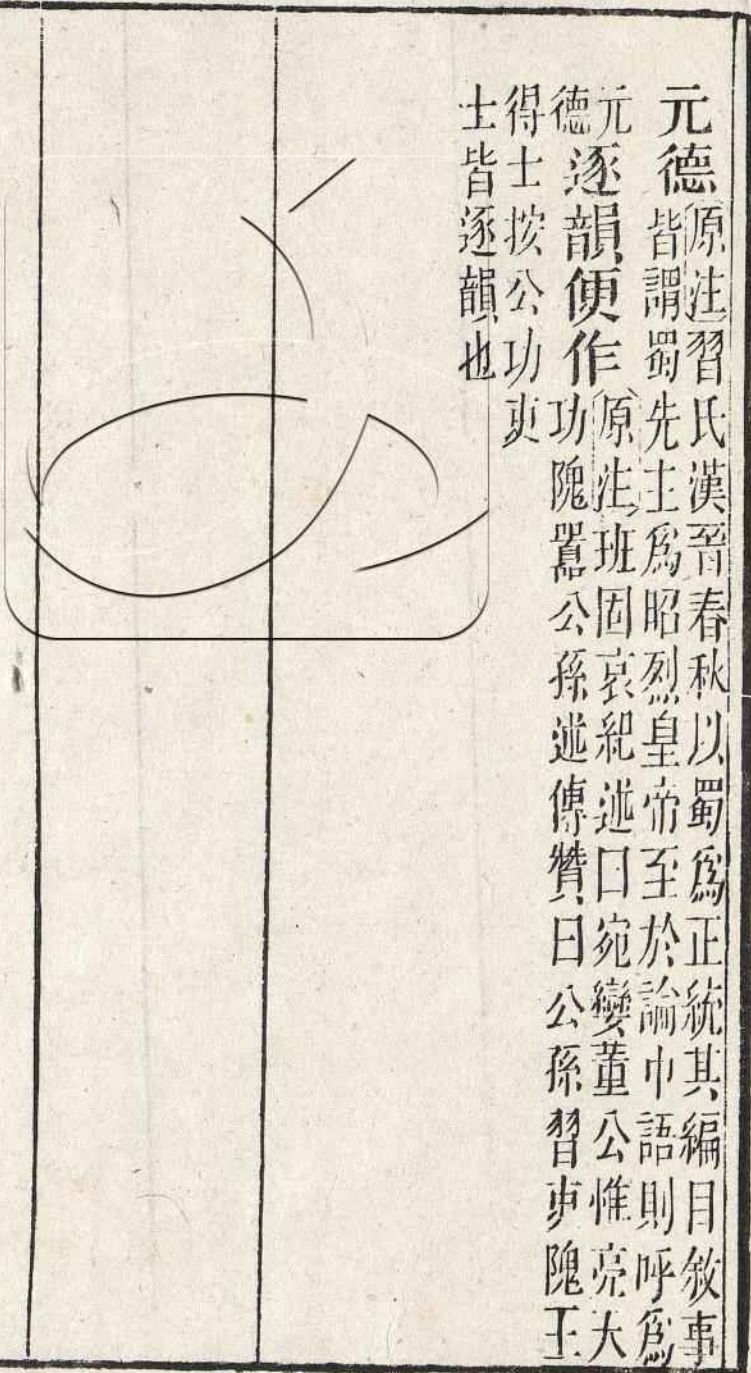 元德原注習氏漢晉春秋以蜀爲正統其編目敘事
皆謂蜀先主爲昭烈皇帝至於論中語則呼爲
元德逐韻便作原注班固哀紀述曰宛孌董公惟亮大
功隗囂公孫述傳贊曰公孫習吏隗王
得士按公功吏
士皆逐韻也